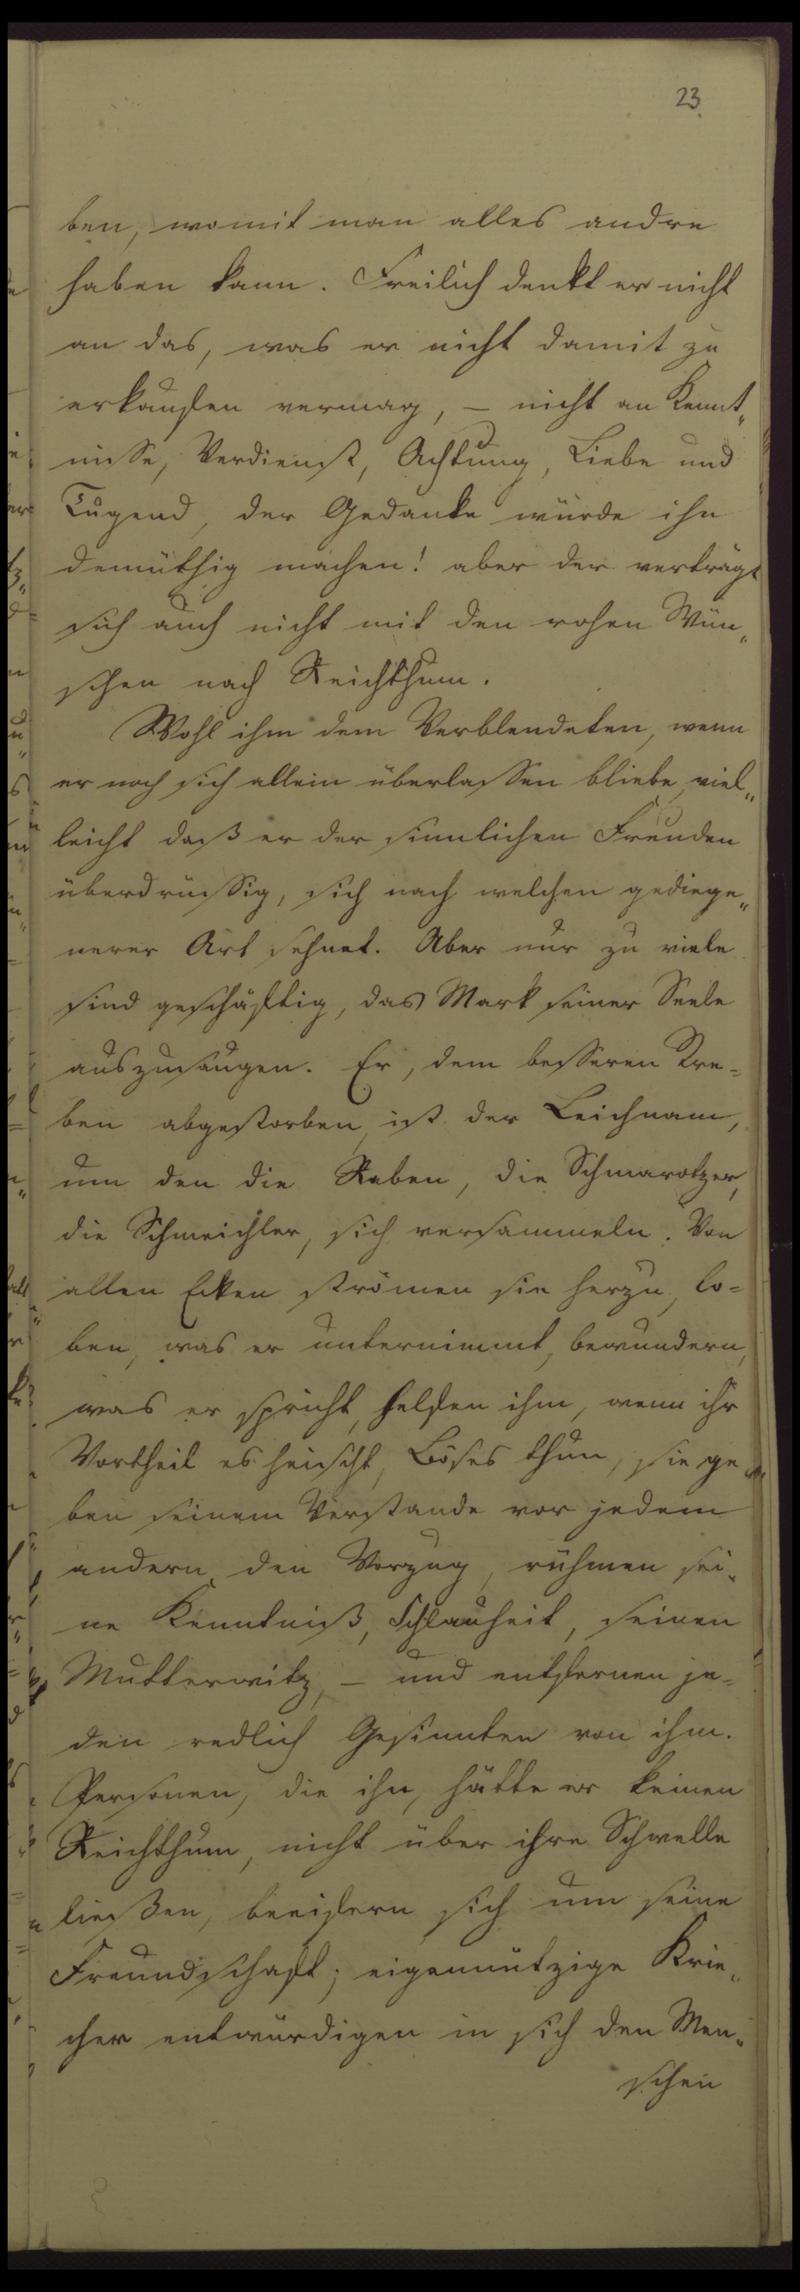 23
ben, womit man alles andre
haben kann. Freilich denkt er nicht
an das, was er nicht damit zu
erkaufen vermag, – nicht an Kennt„
nisse, Verdienst, Achtung, Liebe und
Tugend, der Gedanke würde ihn
demüthig machen! aber der verträgt
sich auch nicht mit den rohen Wün„
schen nach Reichthum.
Wohl ihm dem Verblendeten, wenn
er noch sich allein überlassen bliebe, viel„
leicht daß er der sinnlichen Freuden
überdrüssig, sich nach welchen gediege„
nerer Art sehnet. Aber nur zu viele
sind geschäftig, das Mark seiner Seele
auszusaugen. Er, dem besseren Stre=
ben abgestorben, ist der Leichnam,
um den die Raben, die Schmarotzer,
die Schmeichler, sich versammeln. Von
allen Ecken strömen sie herzu, lo=
ben, was er unternimmt, bewundern,
was er spricht, helfen ihm, wenn ihr
Vortheil es heischt, Böses thun, sie ge„
ben seinem Verstande vor jedem
andern den Vorzug, rühmen sei„
ne Kenntniß, Schlauheit, seinen
Mutterwitz, – und entfernen je=
den redlich Gesinnten von ihm.
Personen, die ihn, hätte er keinen
Reichthum, nicht über ihre Schwelle
ließen, beeifern sich um seine
Freundschaft; eigennützige Krie„
cher entwürdigen in sich den Men„
schen